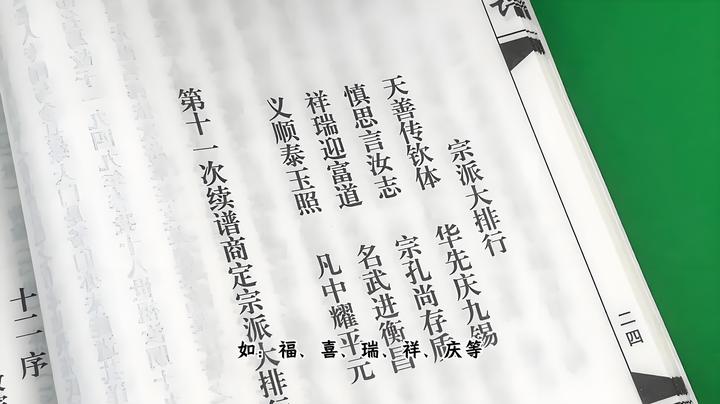 二四
宗派大排行
天善传钦体 华先庆九锡
慎思言汝志 宗孔尚存质
祥瑞迎富道 名武进衡昌
义顺泰玉照 凡中耀平元
第十一次续谱商定宗派大排行
十二序
如：福、喜、瑞、祥、庆等